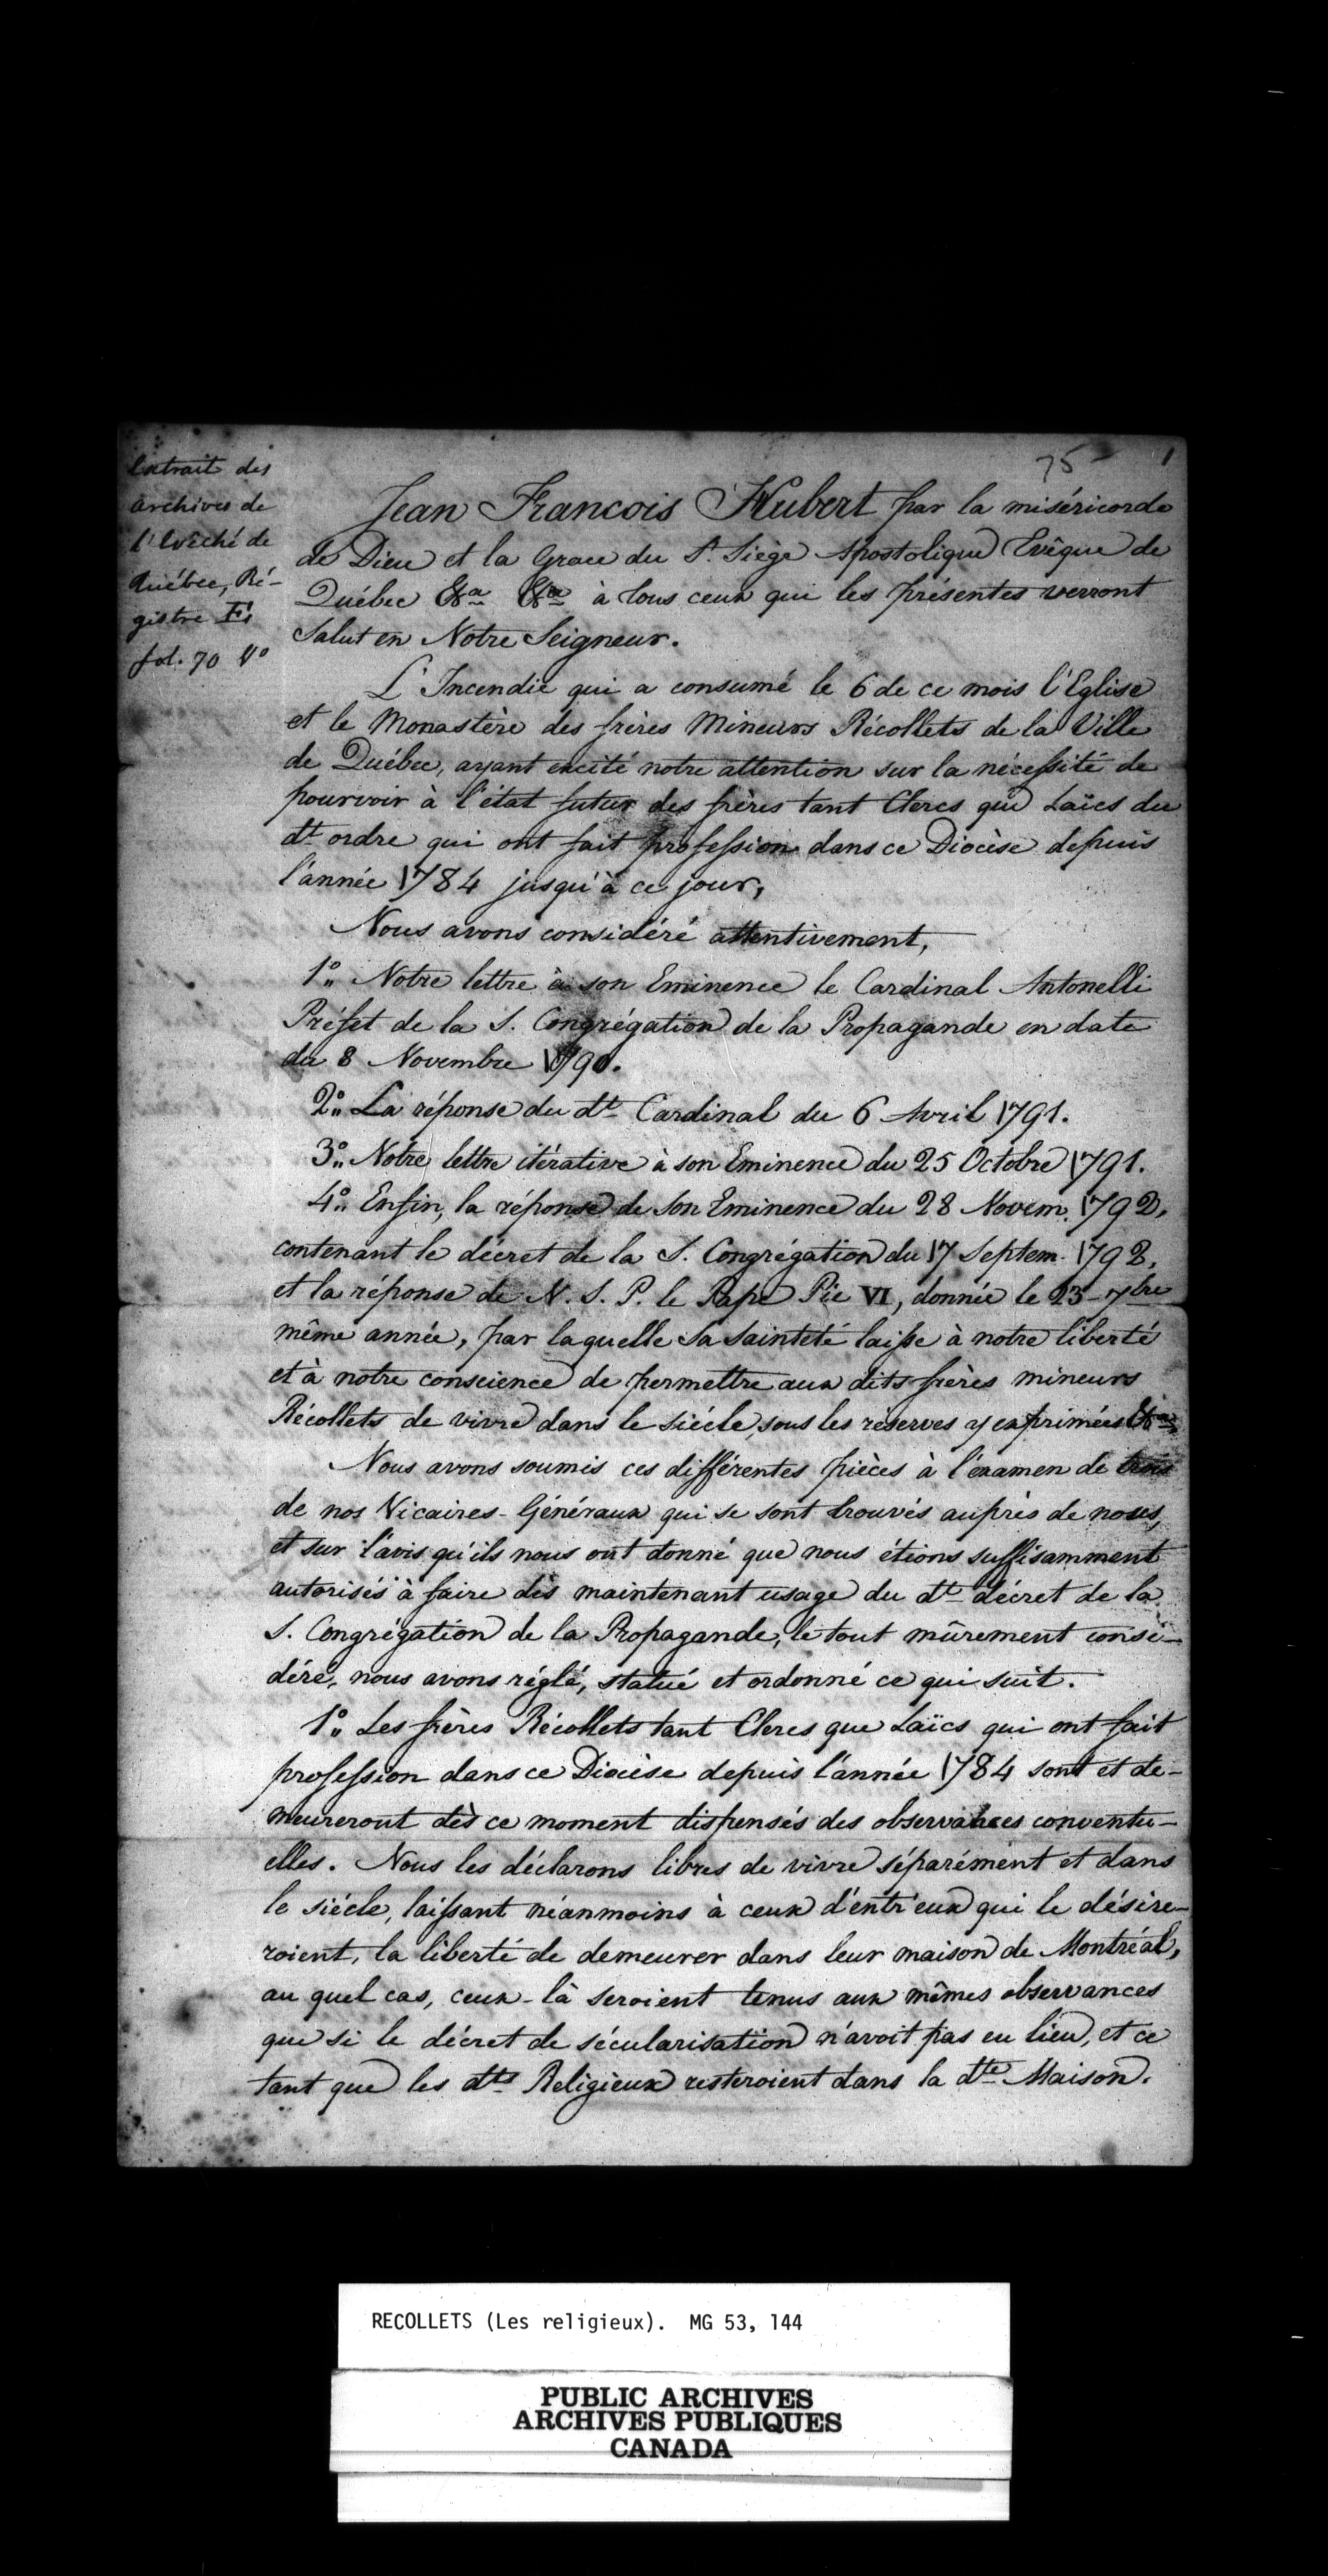 75 1
Extrait des
archives de
l'Evêché de
Québec, Ré-
gistre E,
fol. 70 Vo
Jean Francois Hubert par la miséricorde
de Dieu et la Grace du St. Siège Apostolique Evêque de
Québec &a &a à tous ceux qui les présentes verront
Salut en Notre Seigneur.
L'Incendie qui a consumé le 6 de ce mois l'Eglise
et le Monastère des frères Mineurs Récollets de la Ville
de Québec, ayant excité notre attention sur la nécessité de
pourvoir à l'état futur des frères tant Clercs que Laïcs du
dt ordre qui ont fait profession dans ce Diocèse depuis
l'année 1784 jusqu'à ce jour,
Nous avons considéré attentivement,
1o Notre lettre à son Eminence le Cardinal Antonelli
Préfet de la S. Congrégation de la Propagande en date
du 8 Novembre 1790.
2o La réponse du dt Cardinal du 6 Avril 1791.
3o Notre lettre itérative à son Eminence du 25 Octobre 1791.
4o Enfin, la réponse de son Eminence du 28 Novem. 1792,
contenant le décret de la S. Congrégation du 17 Septem. 1792,
et la réponse de N. S. P. le Pape Pie VI, donnée le 23 7bre
même année, par laquelle Sa Sainteté laisse à notre liberté
et à notre conscience de permettre aux dits frères mineurs
Récollets de vivre dans le siécle, sous les réserves y exprimées &a
Nous avons soumis ces différentes pièces à l'éxamen de trois
de nos Vicaires-Généraux qui se sont trouvés auprès de nous,
et sur l'avis qu'ils nous ont donné que nous étions suffisamment
autorisés à faire dès maintenant usage du dt décret de la
S. Congrégation de la Propagande, le tout mûrement consi-
déré, nous avons réglé, statué et ordonné ce qui suit.
1o Les frères Récollets tant Clercs que Laïcs qui ont fait
profession dans ce Diocèse depuis l'année 1784 sont et de-
meureront dès ce moment dispensés des observances conventu-
elles. Nous les déclarons libres de vivre séparément et dans
le siécle, laissant néanmoins à ceux d'entr'eux qui le désire-
roient, la liberté de demeurer dans leur maison de Montréal,
au quel cas, ceux-là seroient tenus aux mêmes observances
que si le décret de sécularisation n'avoit pas eu lieu, et ce
tant que les dts Religieux resteroient dans la dte Maison.
RECOLLETS (Les religieux). MG 53, 144
PUBLIC ARCHIVES
ARCHIVES PUBLIQUES
CANADA